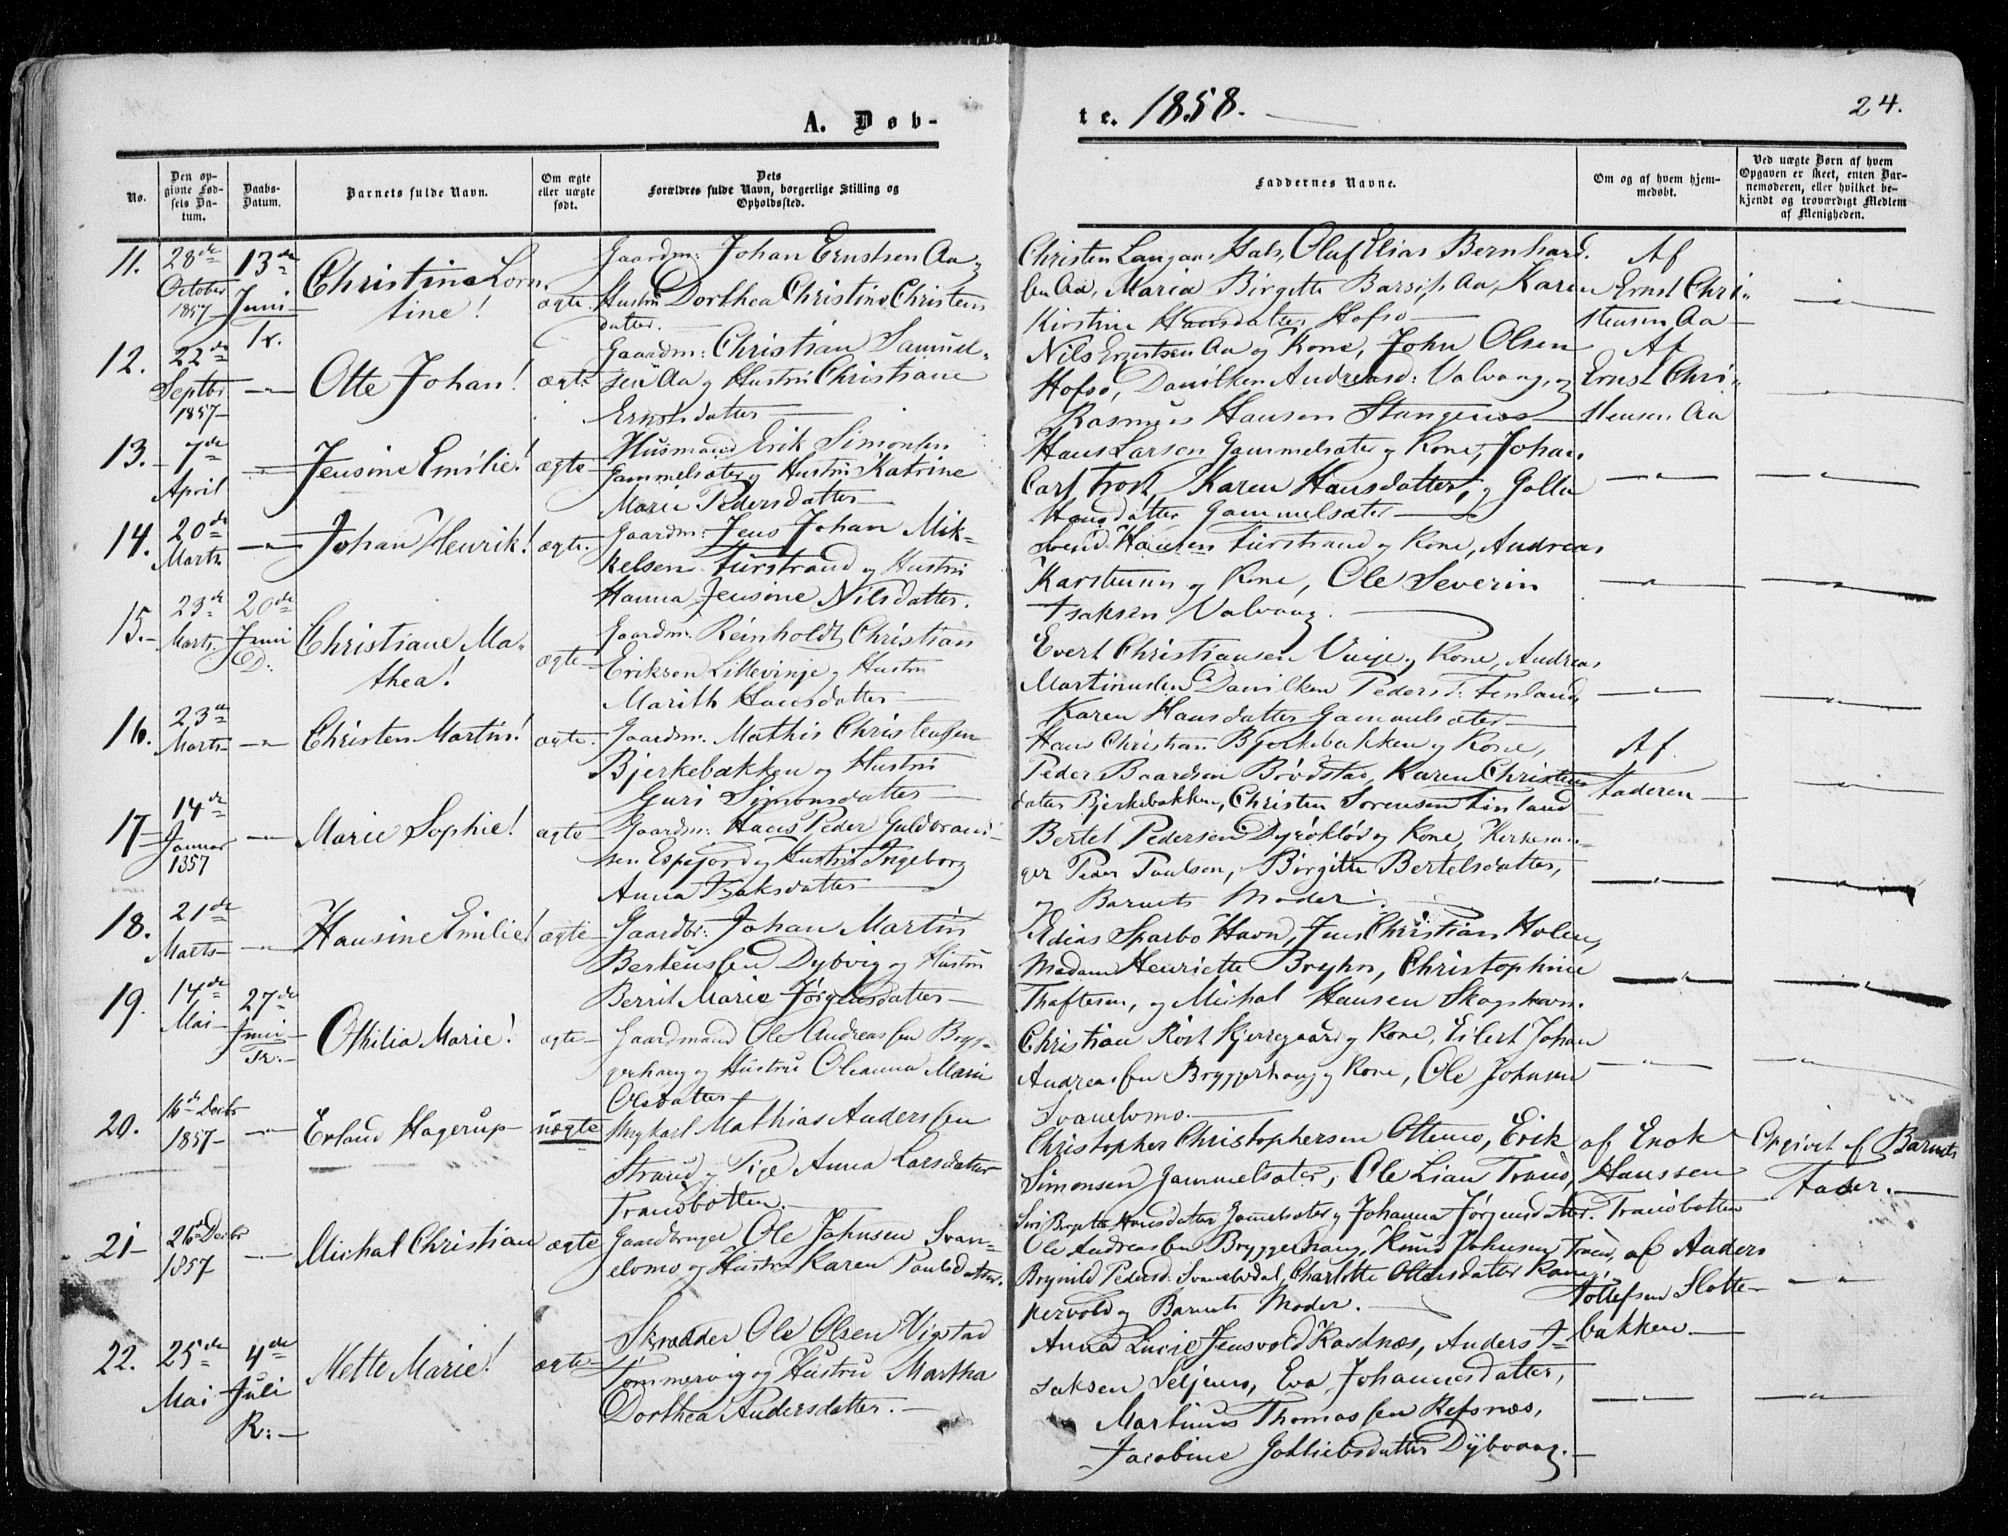 A. Døb-
te. 1858.
24.
No.
Den op-
givne Fød-
sels Da-
tum.
Daabs-
Datum.
Barnets fulde Navn.
Om ægte
eller uægte
født.
Dets
Forældres fulde Navn, borgerlige Stilling og
Opholdssted.
Faddernes Navne.
Om og af hvem hjem-
medøbt.
Ved uægte Børn af hvem
Opgaven er skeet, enten Bar-
nemoderen, eller hvilket be-
kjendt og troværdigt Medlem
af Menigheden.
11.
28de
October
1857
13de
Juni
Tr.
Christine
tine!
ægte
Gaardm: Johan Ernstsen Aa
Hustru Dorthea Christine Christens
datter.
Christen Hals, Oluf Elias Bernhard
sen Aa, Maria Birgitte Aa, Karen
Kirstine Hansdatter Hofsø
Af
Ernst Chri-
stensen Aa
12.
22de
Septbr
1857
Otte Johan!
ægte
Gaardm: Christian Samuel-
sen Aa og Hustru Christiane
Ernstsdatter
Nils Erentsen Aa og Kone, John Olsen
Hofsø, Danilken Andreasd: Valvaag, og
Rasmus Hansen Stangenæs
Af
Ernst Chri-
stensen Aa
13.
7de
April
Jensine Emilie!
ægte
Husmand Erik Simonsen
Gammelsæter og Hustru Katrine
Marie Pedersdatter
Hans Larsen Gammelsæter og Kone, Johan
Carl Trost, Karen Hansdatter, og Golla
Hansdatter Gammelsæter
14.
20de
Marts
Johan Henrik!
ægte.
Gaardm: Jens Johan Mik-
kelsen Furstrand og Hustru
Hanna Jensine Nilsdatter.
Svend Hansen Furstrand og Kone, Andreas
Karstensen og Kone, Ole Severin
Isaksen Valvaag.
15.
23de
Marts.
20de
Juni
D:
Christiane Ma-
thea!
ægte
Gaardm: Reinholdt Christian
Eriksen Lillevinje og Hustru
Marith Hansdatter
Evert Christiansen Vinje og Kone, Andreas
Martinussen Danilken Pedersd: Finland,
Karen Hansdatter Gammelsæter
16.
23de
Marts
Christen Martin!
ægte.
Gaardm: Mathis Christensen
Bjerkebakken og Hustru
Guri Simonsdatter
Hans Christian Bjerkebakken og Kone,
Peder Baardsen Brødstad, Karen Christens
datter Bjerkebakken, Christen Sørensen Finland
Af
Faderen
17
14de
Januar
1857
Marie Sophie!
ægte
Gaardm: Hans Peder Guldbrand-
sen Espejord og Hustru Ingeborg
Anna Isaksdatter
Bertel Pedersen Dyrøkløv og Kone, Kirkesan-
ger Peder Paulsen, Birgitte Bertelsdatter,
og Barnets Moder.
18.
21de
Marts
Hansine Emilie!
ægte
Gaardbr: Johan Martin
Berteussen Dybvig og Hustru
Berrit Marie Jørgensdatter
Edias Sparbo Havn, Jens Christian Holen,
Madam Henriette Bryhn, Christophine
Thaftesen, og Michal Hansen Skogshavn.
19.
14de
Mai
27de
Juni
Tr.
Othilia Marie!
ægte
Gaardmand Ole Andreassen Bryg-
gerhaug og Hustru Oleanna Marie
Olsdatter
Christian Røst Kjerregaard og Kone, Eilert Johan
Andreassen Bryggerhaug og Kone, Ole Johnsen
Svanelvmo.
20.
16de Decbr
1857
Erland Hagerup
uægte
Ungkarl Mathias Anderssen
Strand og Pige Anna Larsdatter
Tranøbotten.
Christopher Christophersen Ottemo, Erik
Simonsen Gammelsæter, Ole Lian Tranø,
Siri Birgitte Hansdatter Gammelsæter og Johanna Jørgensdatter.
af Enok
Hanssen
Tranøbotten
Opgivet af Barnets
Fader.
21
26de Decbr
1857
Michal Christian
ægte
Gaardbruger Ole Johnsen Svan-
elvmo og Hustru Karen Paulsdatter.
Ole Andreassen Bryggerhaug, Knud Johnsen Tranø,
Brynild Pedersd: Svanelvdal, Charlotte Ottensdatter Kam-
pervold og Barnets Moder.
af Anders
Tollefsen Slotte-
bakken
22.
25de
Mai
4de
Juli
R:
Mette Marie!
ægte
Skrædder Ole Olsen Vigstad
Tømmervig og Hustru Martha
Dorthea Andersdatter.
Anna Lucie Jensvold Kastnæs, Anders I-
saksen Seljenes, Eva Johannesdatter,
Martinus Thomassen Refsnæs,
Jacobine Gotliebsdatter Dybvaag.